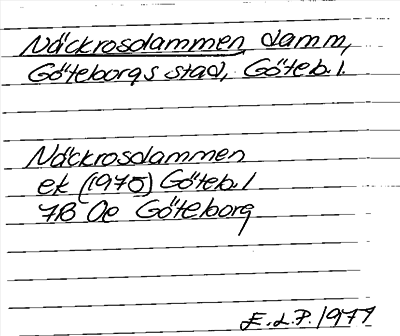 Näckrosdammen, damm,
Göteborgs stad, Göteb. l.
Näckrosdammen
ek (1975) Göteb. l
7B 0e Göteborg
E.L.P. 1977